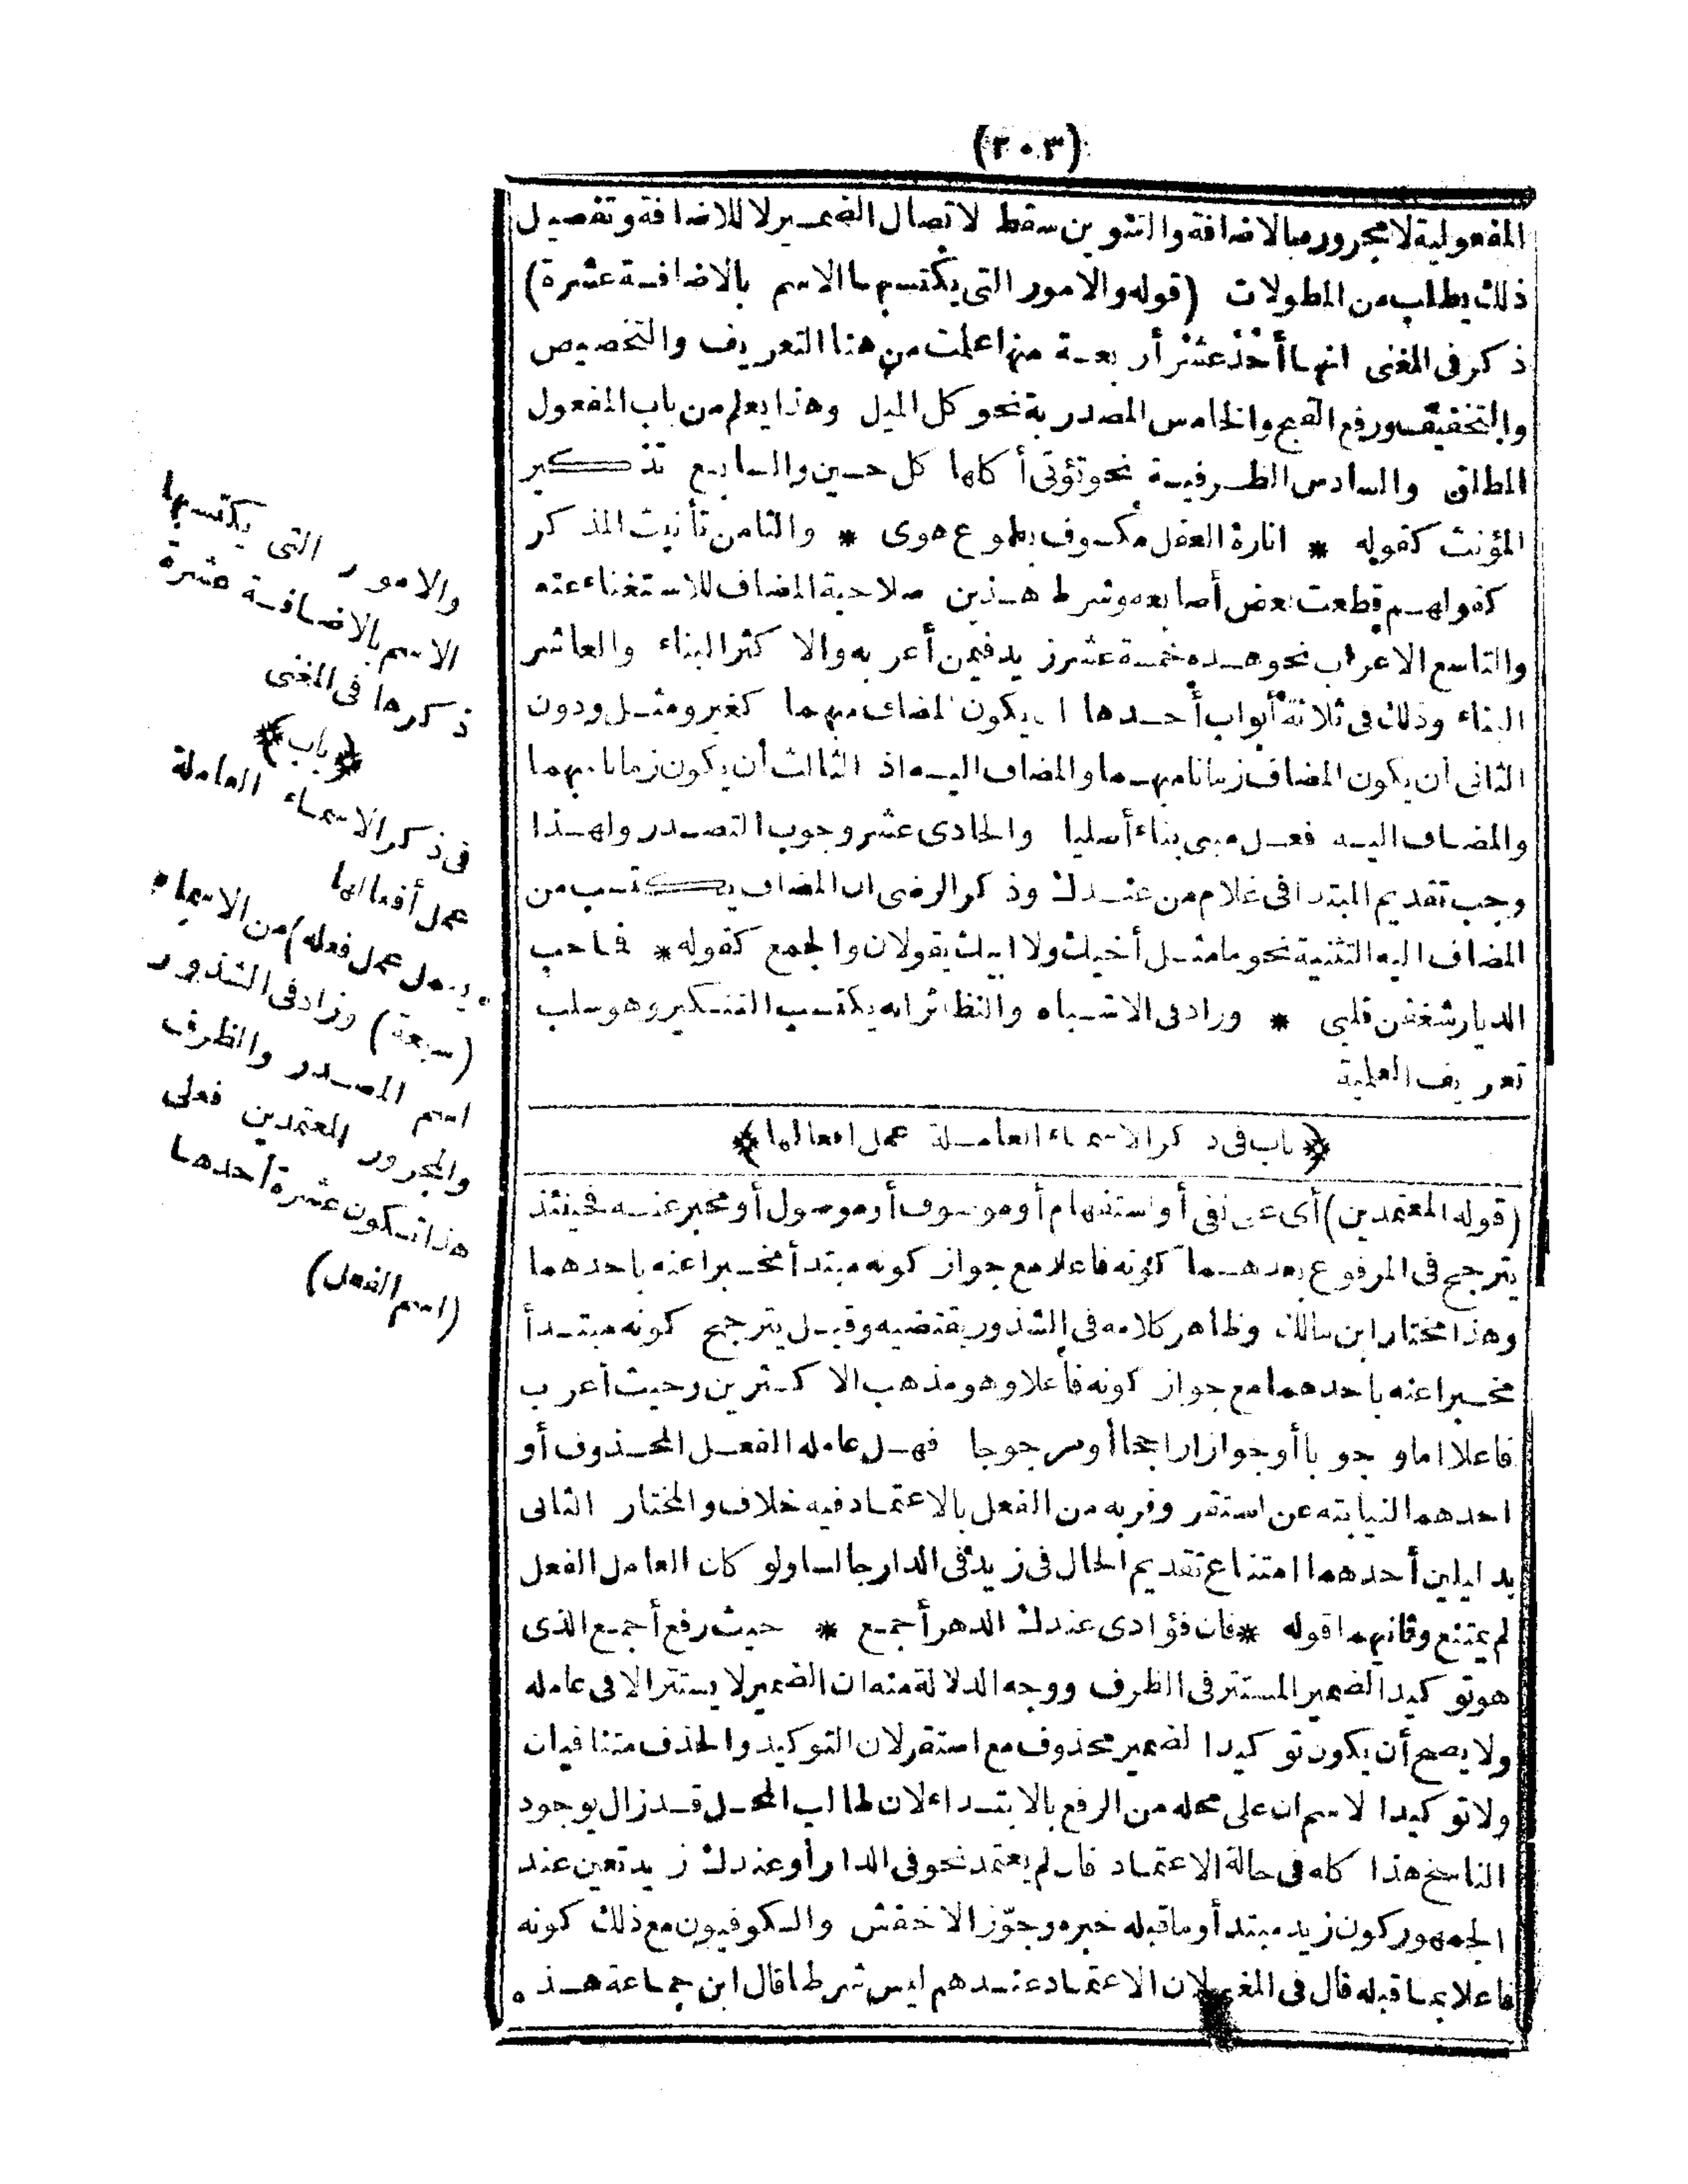 (٢٠٣)
المفعولية لا مجرور مبالاضافة والتنوين سقط لاتصال الضمير لا للاضافة وتفصيل
ذلك يطلب من المطولات (قوله والامور التى يكتسبها الاسم بالاضافة عشرة)
ذكر فى المغنى انها أحد عشر أربعة منها علمت من هنا التعريف والتخصيص
والتخفيف ورفع القبح والخامس المصدرية نحو كل الميل وهذا يعلم من باب المفعول
المطلق والسادس الظرفية نحو تؤتى أكلها كل حين والسابع تذكير
المؤنث كقوله * انارة العقل مكسوف بطوع هوى * والثامن تأنيث المذكر
كقولهم قطعت بعض أصابعه وشرط هذين صلاحية المضاف للاستغناء عنه
والتاسع الاعراب نحو هذه خمسة عشر زيد فيمن أعربه والا كثر البناء والعاشر
البناء وذلك فى ثلاثة أبواب أحدها ان يكون المضاف مبهما كغير ومثل ودون
الثانى ان يكون المضاف زمانا مبهما والمضاف اليه اذ الثالث أن يكون زمانا مبهما
والمضاف اليه فعل مبنى بناء أصليا والحادى عشر وجوب التصدر ولهذا
وجب تقديم المبتدا فى غلام من عندك وذكر الرضى ان المضاف يكتسب من
المضاف اليه التثنية نحو ما مثل أخيك ولا ابيك يقولان والجمع كقوله * فما حب
الديار شغفن قلبى * وزاد فى الاشباه والنظائر انه يكتسب التنكير وهو سلب
تعريف العلمية
﴿باب فى ذكر الاسماء العاملة عمل افعالها﴾
(قوله المعتمدين) أى على نفى أو استفهام أو موصوف أو موصول أو مخبر عنه فحينئذ
يترجح فى المرفوع بعدهما كونه فاعلا مع جواز كونه مبتدأ مخبرا عنه باحدهما
وهذا مختار ابن مالك وظاهر كلامه فى الشذور يقتضيه وقيل يترجح كونه مبتدأ
مخبرا عنه باحدهما مع جواز كونه فاعلا وهو مذهب الاكثرين وحيث أعرب
فاعلا اما وجوبا أو جوازا راجحا أو مرجوحا فهل عامله الفعل المحذوف أو
احدهما لنيابته عن استقر وقربه من الفعل بالاعتماد فيه خلاف والمختار الثانى
بدليلين أحدهما امتناع تقديم الحال فى زيد فى الدار جالسا ولو كان العامل الفعل
لم يمتنع وثانيهما قوله * فان فؤادى عندك الدهر أجمع * حيث رفع أجمع الذى
هو توكيد الضمير المستتر فى الظرف ووجه الدلالة منه ان الضمير لا يستتر الا فى عامله
ولا يصح أن يكون توكيدا لضمير محذوف مع استقر لان التوكيد والحذف متنافيان
ولا توكيدا لاسم ان على محله من الرفع بالابتداء لان طالب المحل قد زال بوجود
الناسخ هذا كله فى حالة الاعتماد فان لم يعتمد نحو فى الدار أو عندك زيد تعين عند
الجمهور كون زيد مبتدأ وما قبله خبره وجوّز الاخفش والكوفيون مع ذلك كونه
فاعلا بما قبله قال فى المغنى لان الاعتماد عندهم ليس شرطا قال ابن جماعة هذه
والامور التى يكتسبها
الاسم بالاضافة عشرة
ذكرها فى المغنى
﴿باب﴾
فى ذكر الاسماء العاملة
عمل أفعالها
يعمل عمل فعله) من الاسماء
(سبعة) وزاد فى الشذور
اسم المصدر والظرف
والمجرور المعتمدين فعلى
هذا تكون عشرة أحدها
(اسم الفعل)